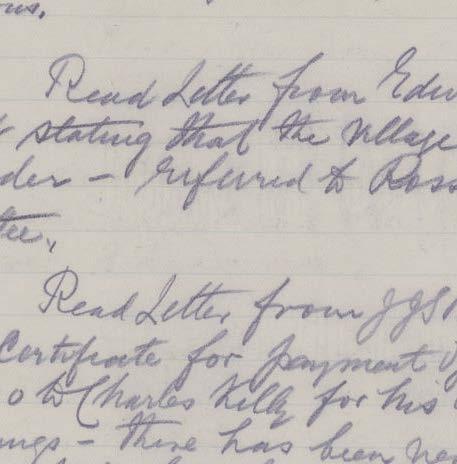 ous.
Read Letter from Edw
stating that the Village
der - referred to Ross
tee.
Read Letter from JGS
Certificate for payment of
0 to Charles Kelly for his
ings - there has been